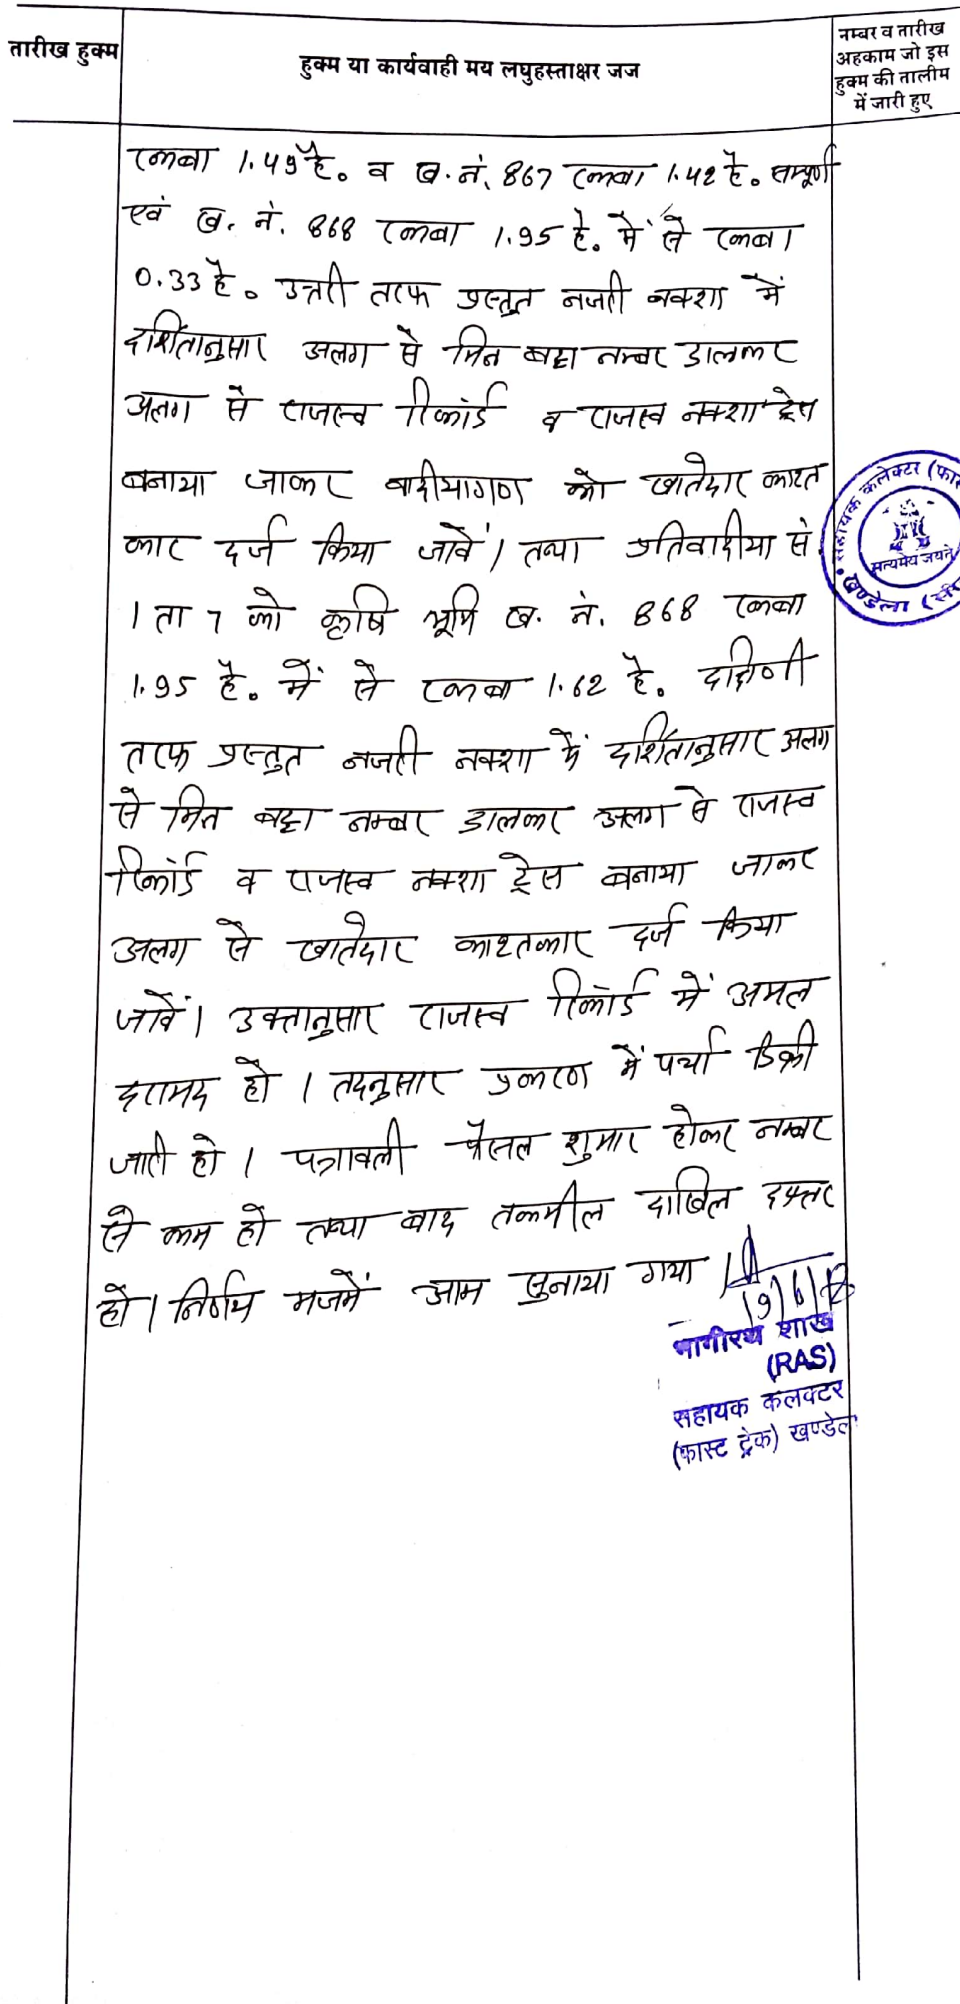 तारीख हुक्म
हुक्म या कार्यवाही मय लघुहस्ताक्षर जज
नम्बर व तारीख
अहकाम जो इस
हुक्म की तालीम
में जारी हुए
रकबा 1.49 है. व ख. नं. 867 रकबा 1.42 है. सम्पूर्ण
एवं ख. नं. 868 रकबा 1.95 है. में से रकबा
0.33 है. उत्तरी तरफ प्रस्तुत नजरी नक्शा में
दर्शितानुसार अलग से मिन बट्टा नम्बर डालकर
अलग से राजस्व रिकॉर्ड व राजस्व नक्शा ट्रेस
बनाया जाकर वादीयागण को खातेदार काश्त
कार दर्ज किया जावें। तथा प्रतिवादीया सं.
1 ता 7 को कृषि भूमि ख. नं. 868 रकबा
1.95 है. में से रकबा 1.62 है. दक्षिणी
तरफ प्रस्तुत नजरी नक्शा में दर्शितानुसार अलग
से मिन बट्टा नम्बर डालकर अलग से राजस्व
रिकॉर्ड व राजस्व नक्शा ट्रेस बनाया जाकर
अलग से खातेदार काश्तकार दर्ज किया
जावें। उक्तानुसार राजस्व रिकॉर्ड में अमल
दरामद हो। तदनुसार प्रकरण में पर्चा डिक्री
जारी हो। पत्रावली फैसल शुमार होकर नम्बर
से कम हो तथा बाद तकमील दाखिल दफ्तर
हो। निर्णय मजमें आम सुनाया गया।
सहायक कलेक्टर (फास्
सत्यमेव जयते
खण्डेला (सी
भागीरथ शाख
(RAS)
सहायक कलक्टर
(फास्ट ट्रेक) खण्डेला